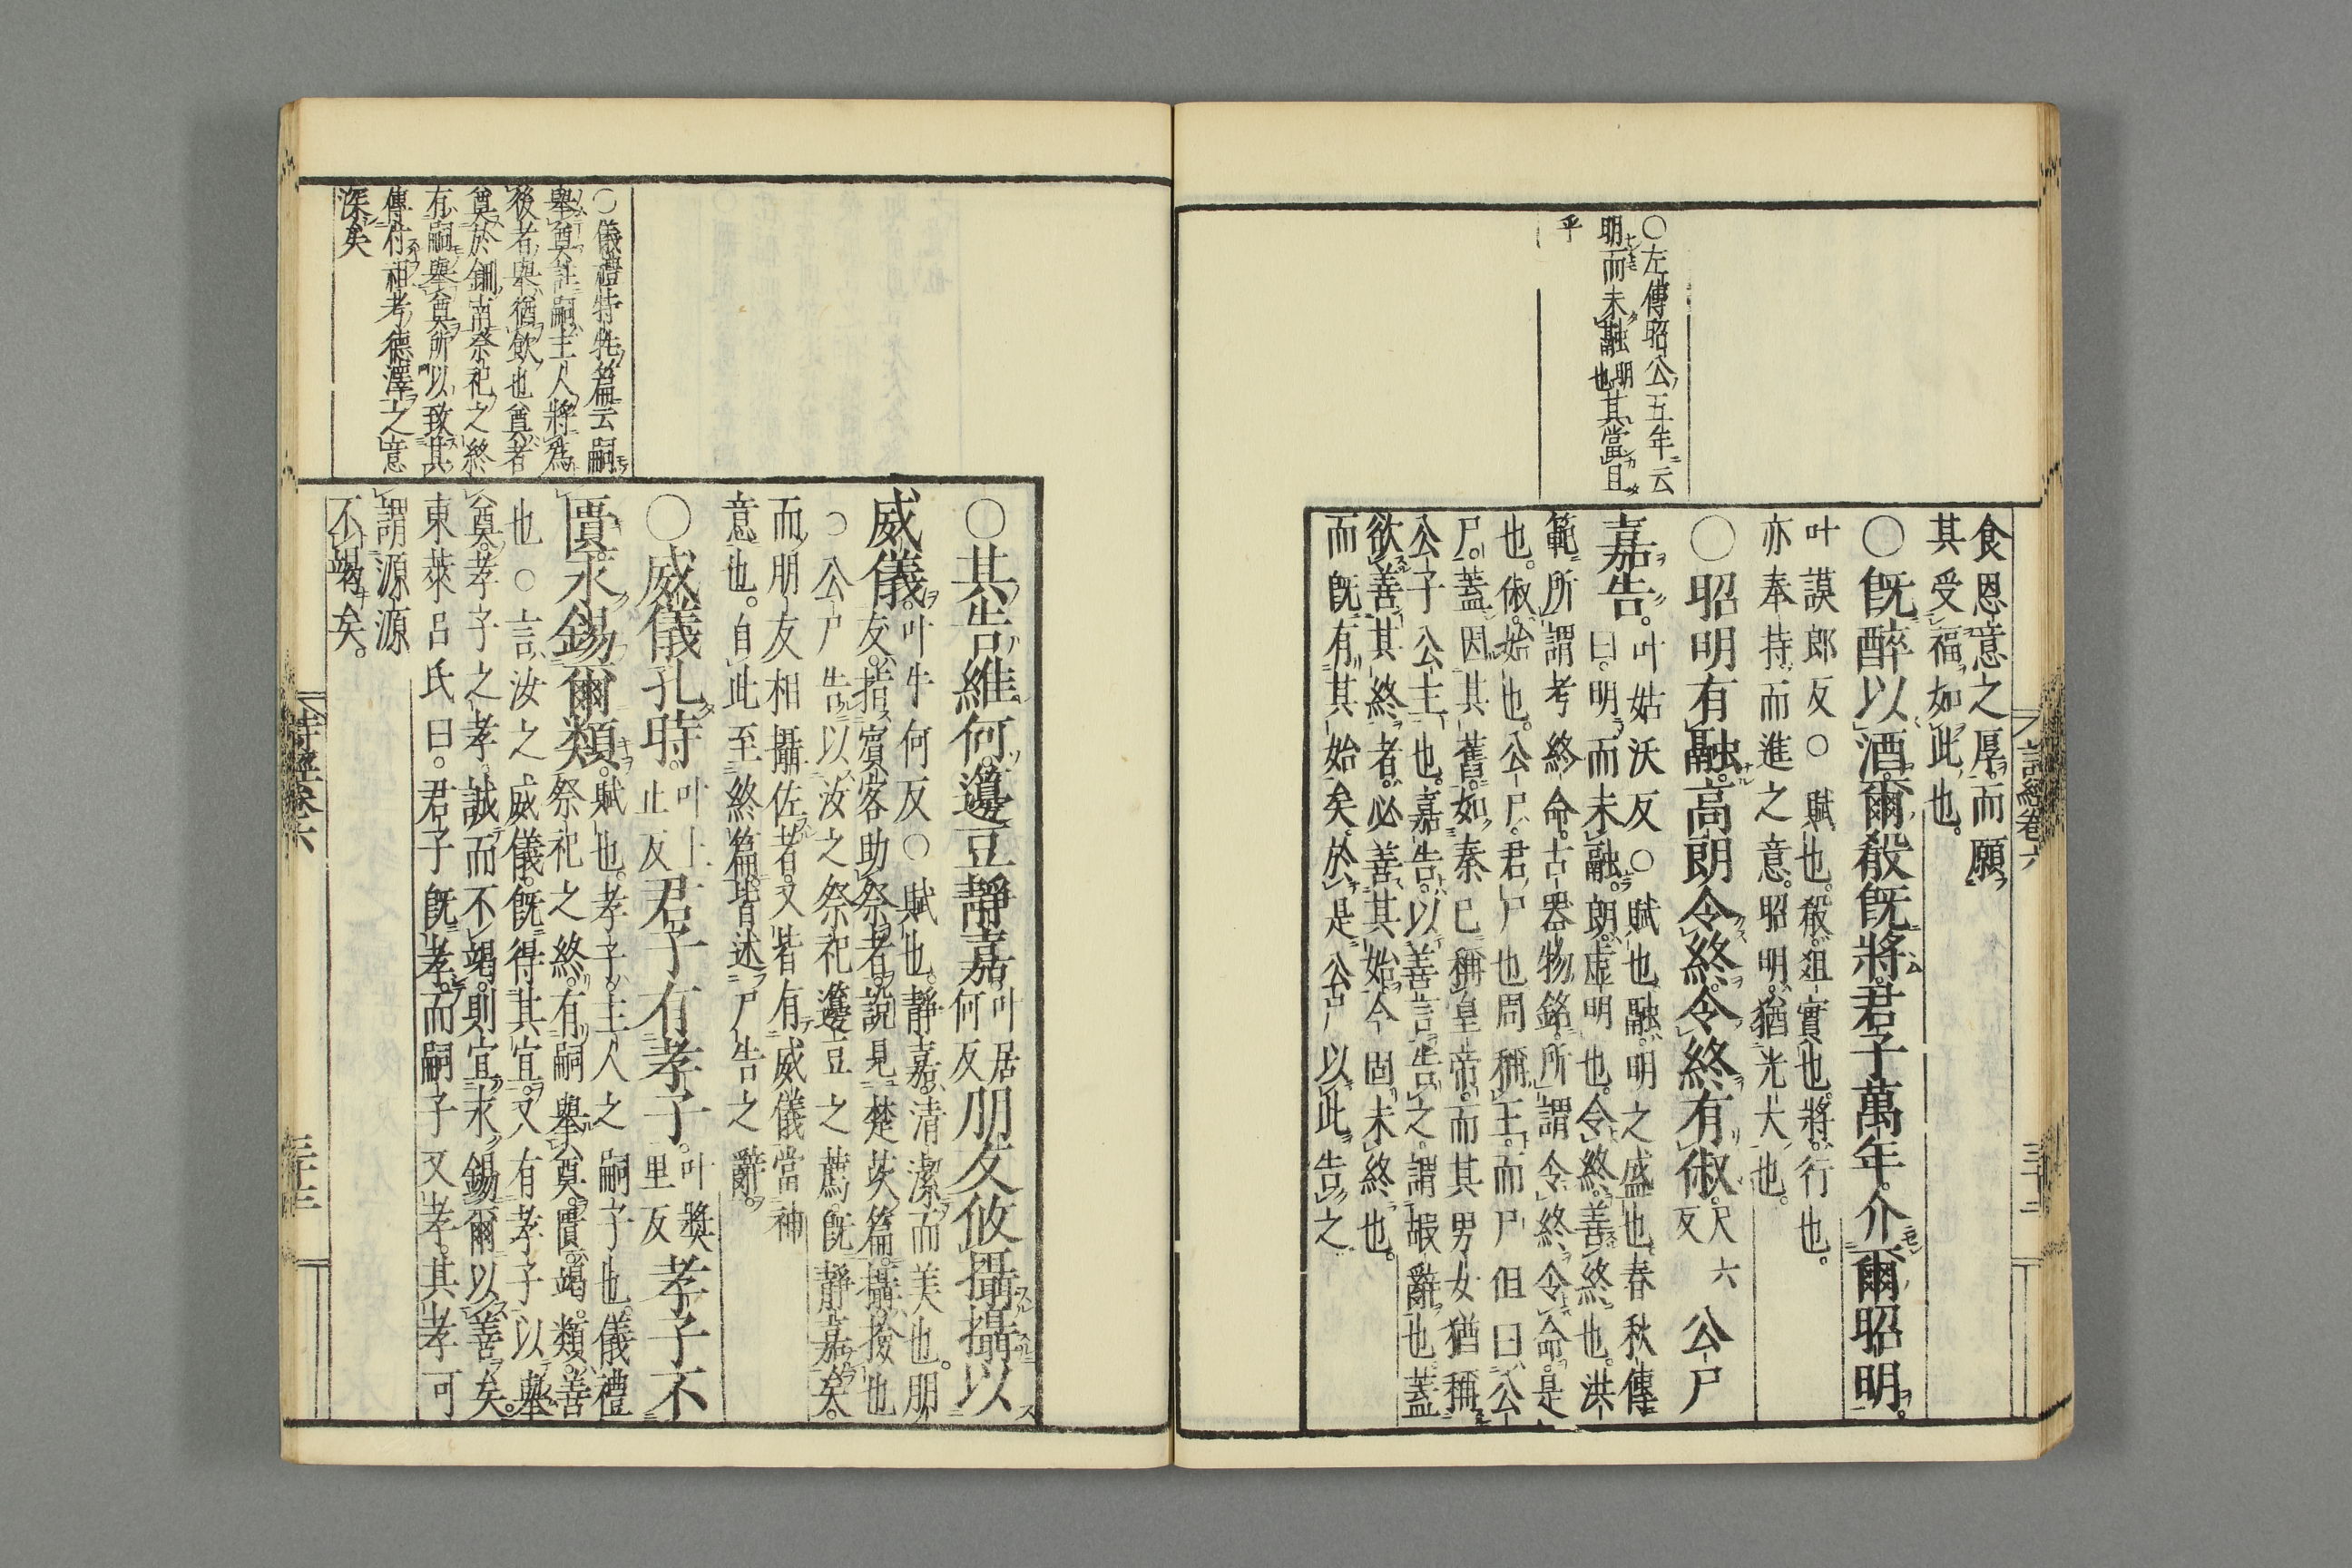 ○左傳昭公五年云
明而未融明也其當旦
乎
食恩意之厚而願
其受福如此也。
○既醉以酒爾殽既將君子萬年。介爾昭明。
叶謨郎反○賦也。殽俎實也。將行也。
亦奉持而進之意。昭明猶光大也。
○昭明有融。高朗令終。令終有俶。尺六反公尸
嘉告。叶姑沃反○賦也融明之盛也春秋傳
曰。明而未融。朗虛明也。令終善終也。洪
範所謂考終命。古器物銘。所謂令終令命。是
也。俶始也。公尸。君尸也周稱王。而尸但曰公
尸。蓋因其舊。如秦已稱皇帝。而其男女猶稱
公子公主也。嘉告。以善言告之。謂嘏辭也蓋
欲善其終者。必善其始。今固未終也。
而既有其始矣。於是公尸以此告之
詩經卷六
三十二
○儀禮特牲篇云嗣
舉奠註嗣主人將爲
後者舉猶飲也奠者
奠於鉶南祭祀之終
有嗣舉奠所以致其
傳付祖考德澤之意
深矣
○其告維何。籩豆靜嘉。叶居何反朋友攸攝攝以
威儀。叶牛何反○賦也。靜嘉清潔而美也。朋
友。指賓客助祭者。說見楚茨篇。攝檢也
○公尸告以汝之祭祀籩豆之薦。既靜嘉矣。
而朋友相攝佐者。又皆有威儀當神
意也。自此至終篇。皆述尸告之辭。
○威儀孔時。叶上止反君子有孝子。叶奬里反孝子不
匱。永錫爾類。賦也。孝子。主人之嗣子也。儀禮
祭祀之終。有嗣舉奠。匱。竭。類。善
也○言汝之威儀。既得其宜。又有孝子以舉
奠。孝子之孝。誠而不竭。則宜永錫爾以善矣。
東萊呂氏曰。君子既孝。而嗣子又孝。其孝可
謂源源
不竭矣。
詩經卷六
三十三